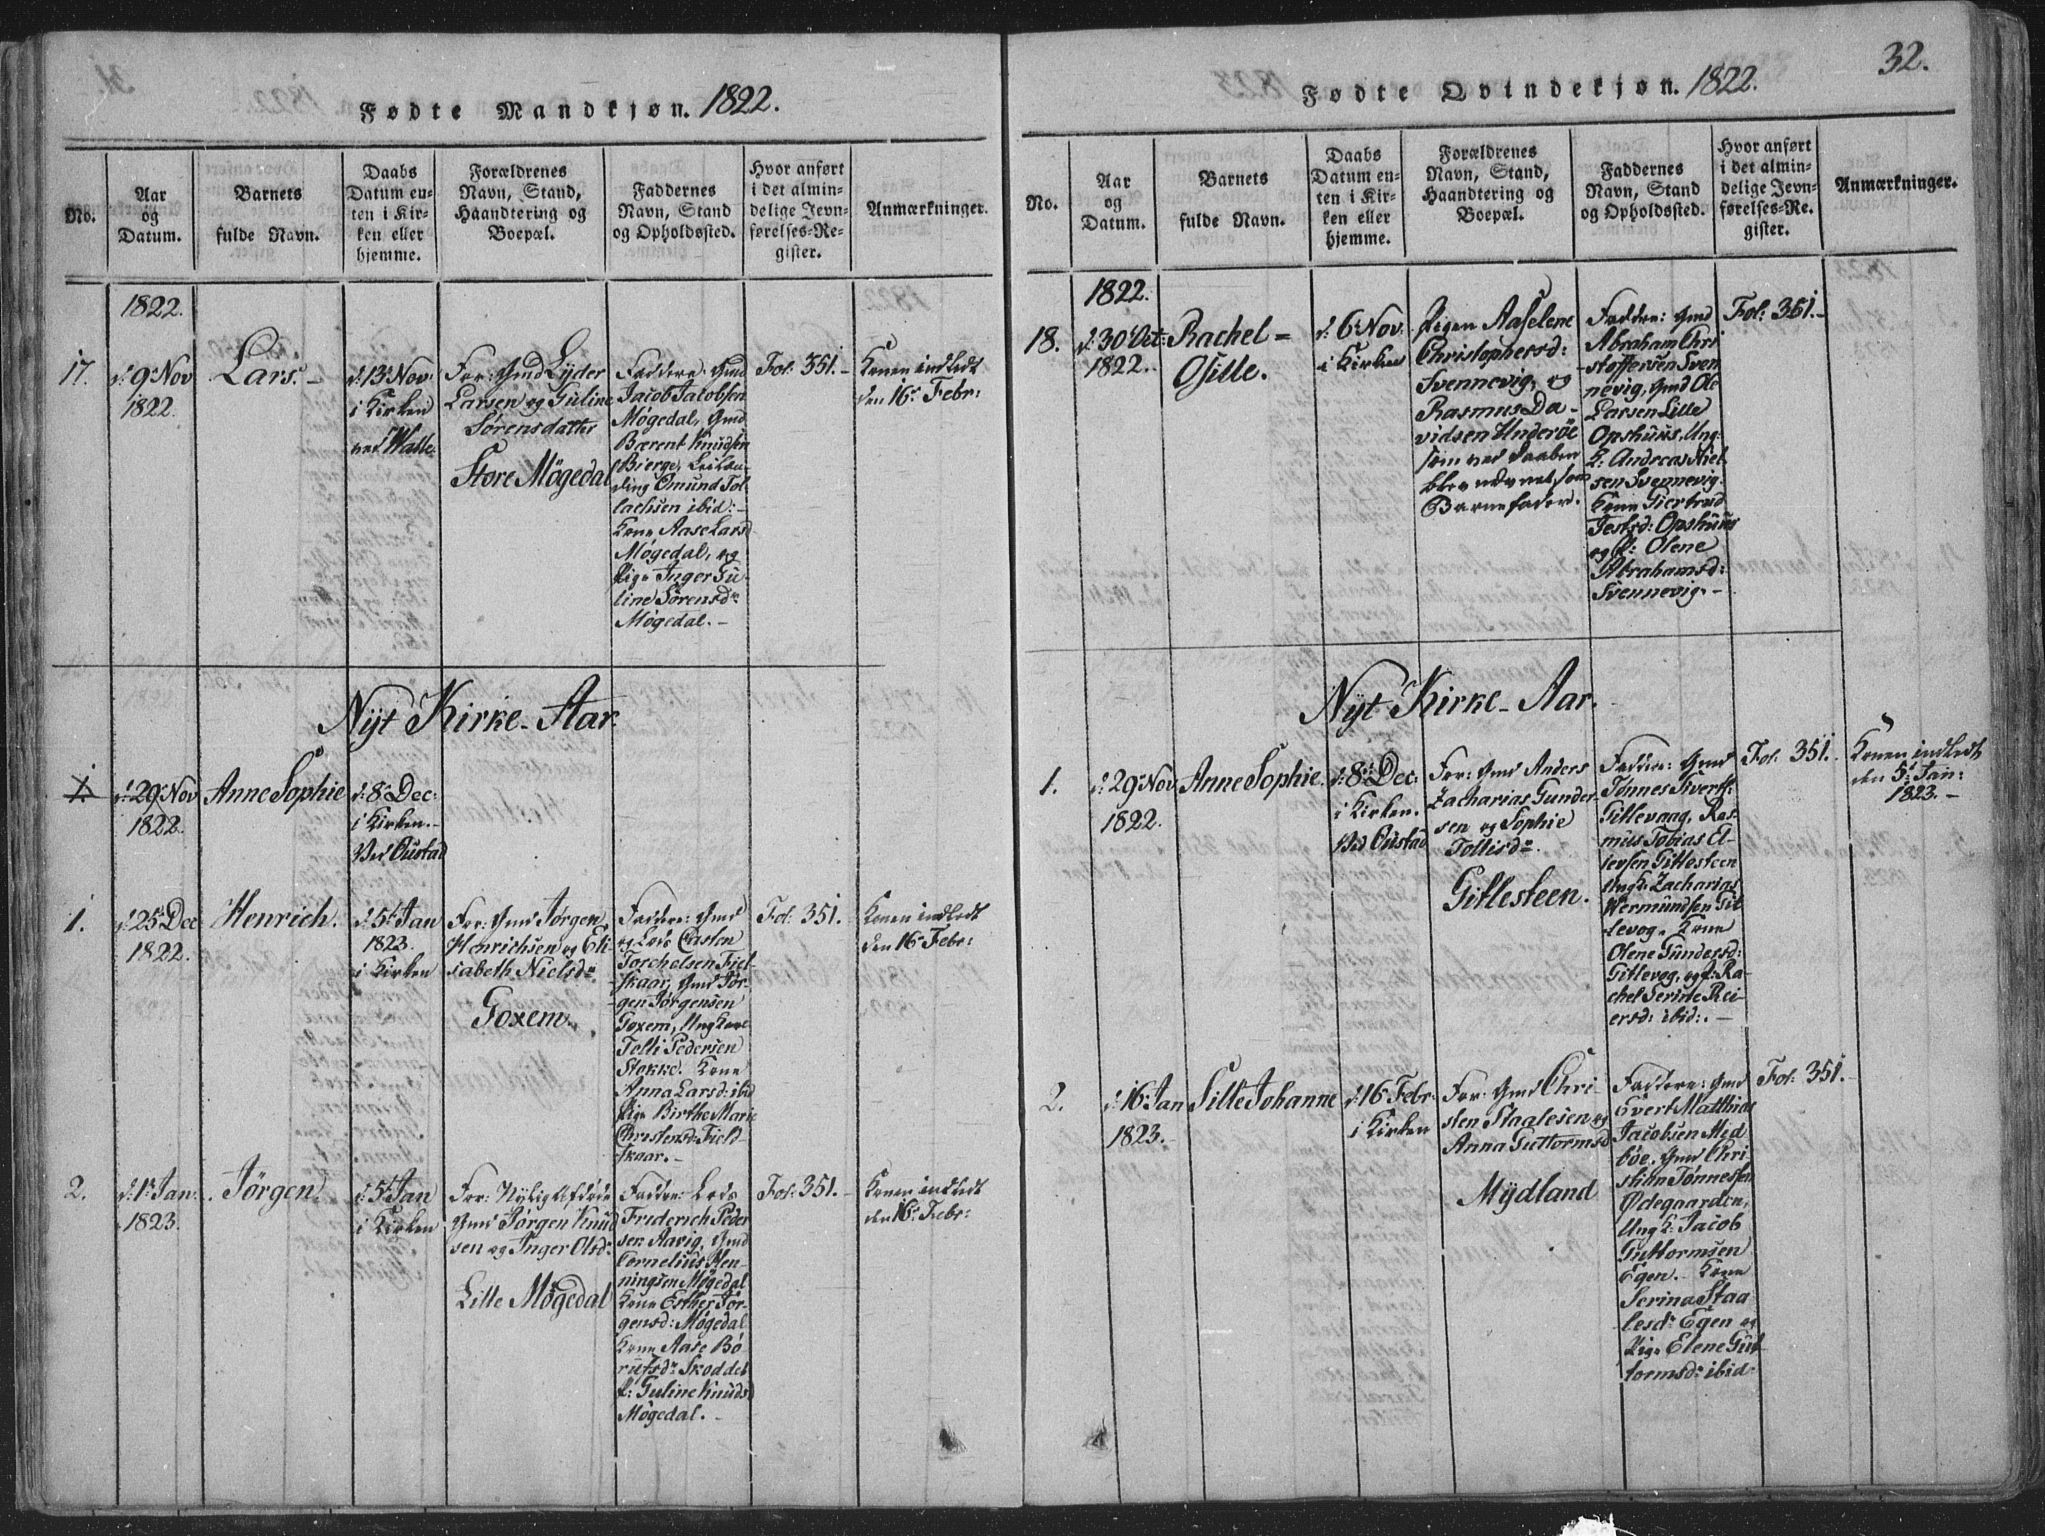 Fødte Mandkjøn. 1822.
No.
Aar
og
Datum.
Barnets
fulde Navn.
Daabs
Datum en-
ten i Kir-
ken eller
hjemme.
Forældrenes
Navn, Stand,
Haandtering og
Boepæl.
Faddernes
Navn, Stand
og Opholdssted.
Hvor anført
i det almin-
delige Jevn-
førelses-Re-
gister.
Anmærkninger.
1822.
17.
d: 9: Nov
1822.
Lars. -
d: 13 Nov:
i Kirken
ved Walle.
For: Gmd Lyder
Larsen og Guline
Sørensdatter
Store Møgedal
Faddre: Gmd
Jacob Jacobsen
Møgedal, Gmd
Bærent Knudsen
Bierge, Leilæn-
ding Omund Tol-
lachsen ibid: -
Kone Aase Larsd
Møgedal, og
Pige Inger Gu-
line Sørensdr
Møgedal. -
Fol: 351. -
Konen indledt
den 16. Febr:
Nyt Kirke-Aar.
1.
d: 29: Nov
1822.
Anne Sophie
d: 8 Dec:
i Kirken. -
Ved Oustad
1.
d: 25 Dec
1822.
Henrich.
d: 5t Jan
1823.
i Kirken
For: Gmd Jørgen
Henrichsen og Eli-
sabeth Nielsdr
Goxem.
Faddre: Gmd
og Lods Casten
Torchelsen Fiel-
skaar, Gmd Jør-
gen Jørgensen
Goxem, Ung Karl
Tolli Pedersen
Stokke. Kone
Anna Larsd: ibid
Pige Birthe Marie
Christensd: Field-
skaar. -
Fol: 351. -
Konen indledt
den 16 Febr:
2.
d: 1: Jan:
1823.
Jørgen
d: 5t Jan
i Kirken
For: Nylig Afdøde
Gmd Jørgen Knud
sen og Inger Olsd:
Lille Møgedal
Faddre: Lods
Friderich Peder
sen Aavig, Gmd
Cornelius Hen-
ningsen Møgedal
Kone Esther Jør-
gensd: Møgedal
Kone Aase Bø-
rufsdr Skoddel
P: Guline Knudsd
Møgedal. -
Fol: 351. -
Konen indledt
den 16: Febr:
32.
Fødte Qvindekjøn. 1822.
No.
Aar
og
Datum.
Barnets
fulde Navn.
Daabs
Datum en-
ten i Kir-
ken eller
hjemme.
Forældrenes
Navn, Stand,
Haandtering og
Boepæl.
Faddernes
Navn, Stand
og Opholdssted.
Hvor anført
i det almin-
delige Jevn-
førelses-Re-
gister.
Anmærkninger.
1822.
18.
d: 30 Oct:
1822.
Rachel -
Osille.
d: 6 Nov:
i Kirken
Pigen Aaselene
Christophersd:
Svennevig, og
Rasmus Da-
vidsen Underøe
som ved Daaben
blev udnævnt som
Barnefader.
Faddre: Gmd
Abraham Chri
stoffersen Sven
nevig, Gmd Ole
Larsen Lille
Opshuus, Ung
K: Andreas Niel
sen Svennevig.
Kone Giertrud
Jertsd: Opshuus
og P: Olene
Abrahamsd:
Svennevig. -
Fol: 351. -
Nyt Kirke-Aar.
1.
d: 29 Nov
1822.
Anne Sophie.
d: 8: Dec:
i Kirken.
Ved Oustad
For: Gmd Anders
Zacharias Gunder
sen og Sophie
Tollisdr
Gitlesteen.
Faddre: Gmd
Tønnes Sivertss:
Gitlevaag, Ras-
mus Tobias El-
levsen Gitlesteen
Ung K: Zacharias
Wermundsen Git
levog. Kone
Olene Gundersd:
Gitlevog, og P: Ra-
chel Serine Rei-
ersd: ibid: -
Fol: 351.
Konen indledt
den 5: Jan:
1823. -
2.
d: 16 Jan
1823.
Sille Johanne
d: 16 Febr:
i Kirken
For: Gmd Chri
sten Staalesen og
Anna Guttormsd
Mydland
Faddere: Gmd
Evert Matthias
Jacobsen Mid
bøe, Gmd Chri
stian Tønnessen
Ødegaarden,
Ung K: Jacob
Guttormsen
Egen. - Kone
Serina Staa
lesdr Egen og
Pige Elene Gut
tormsd: ibid:
Fol: 351. -